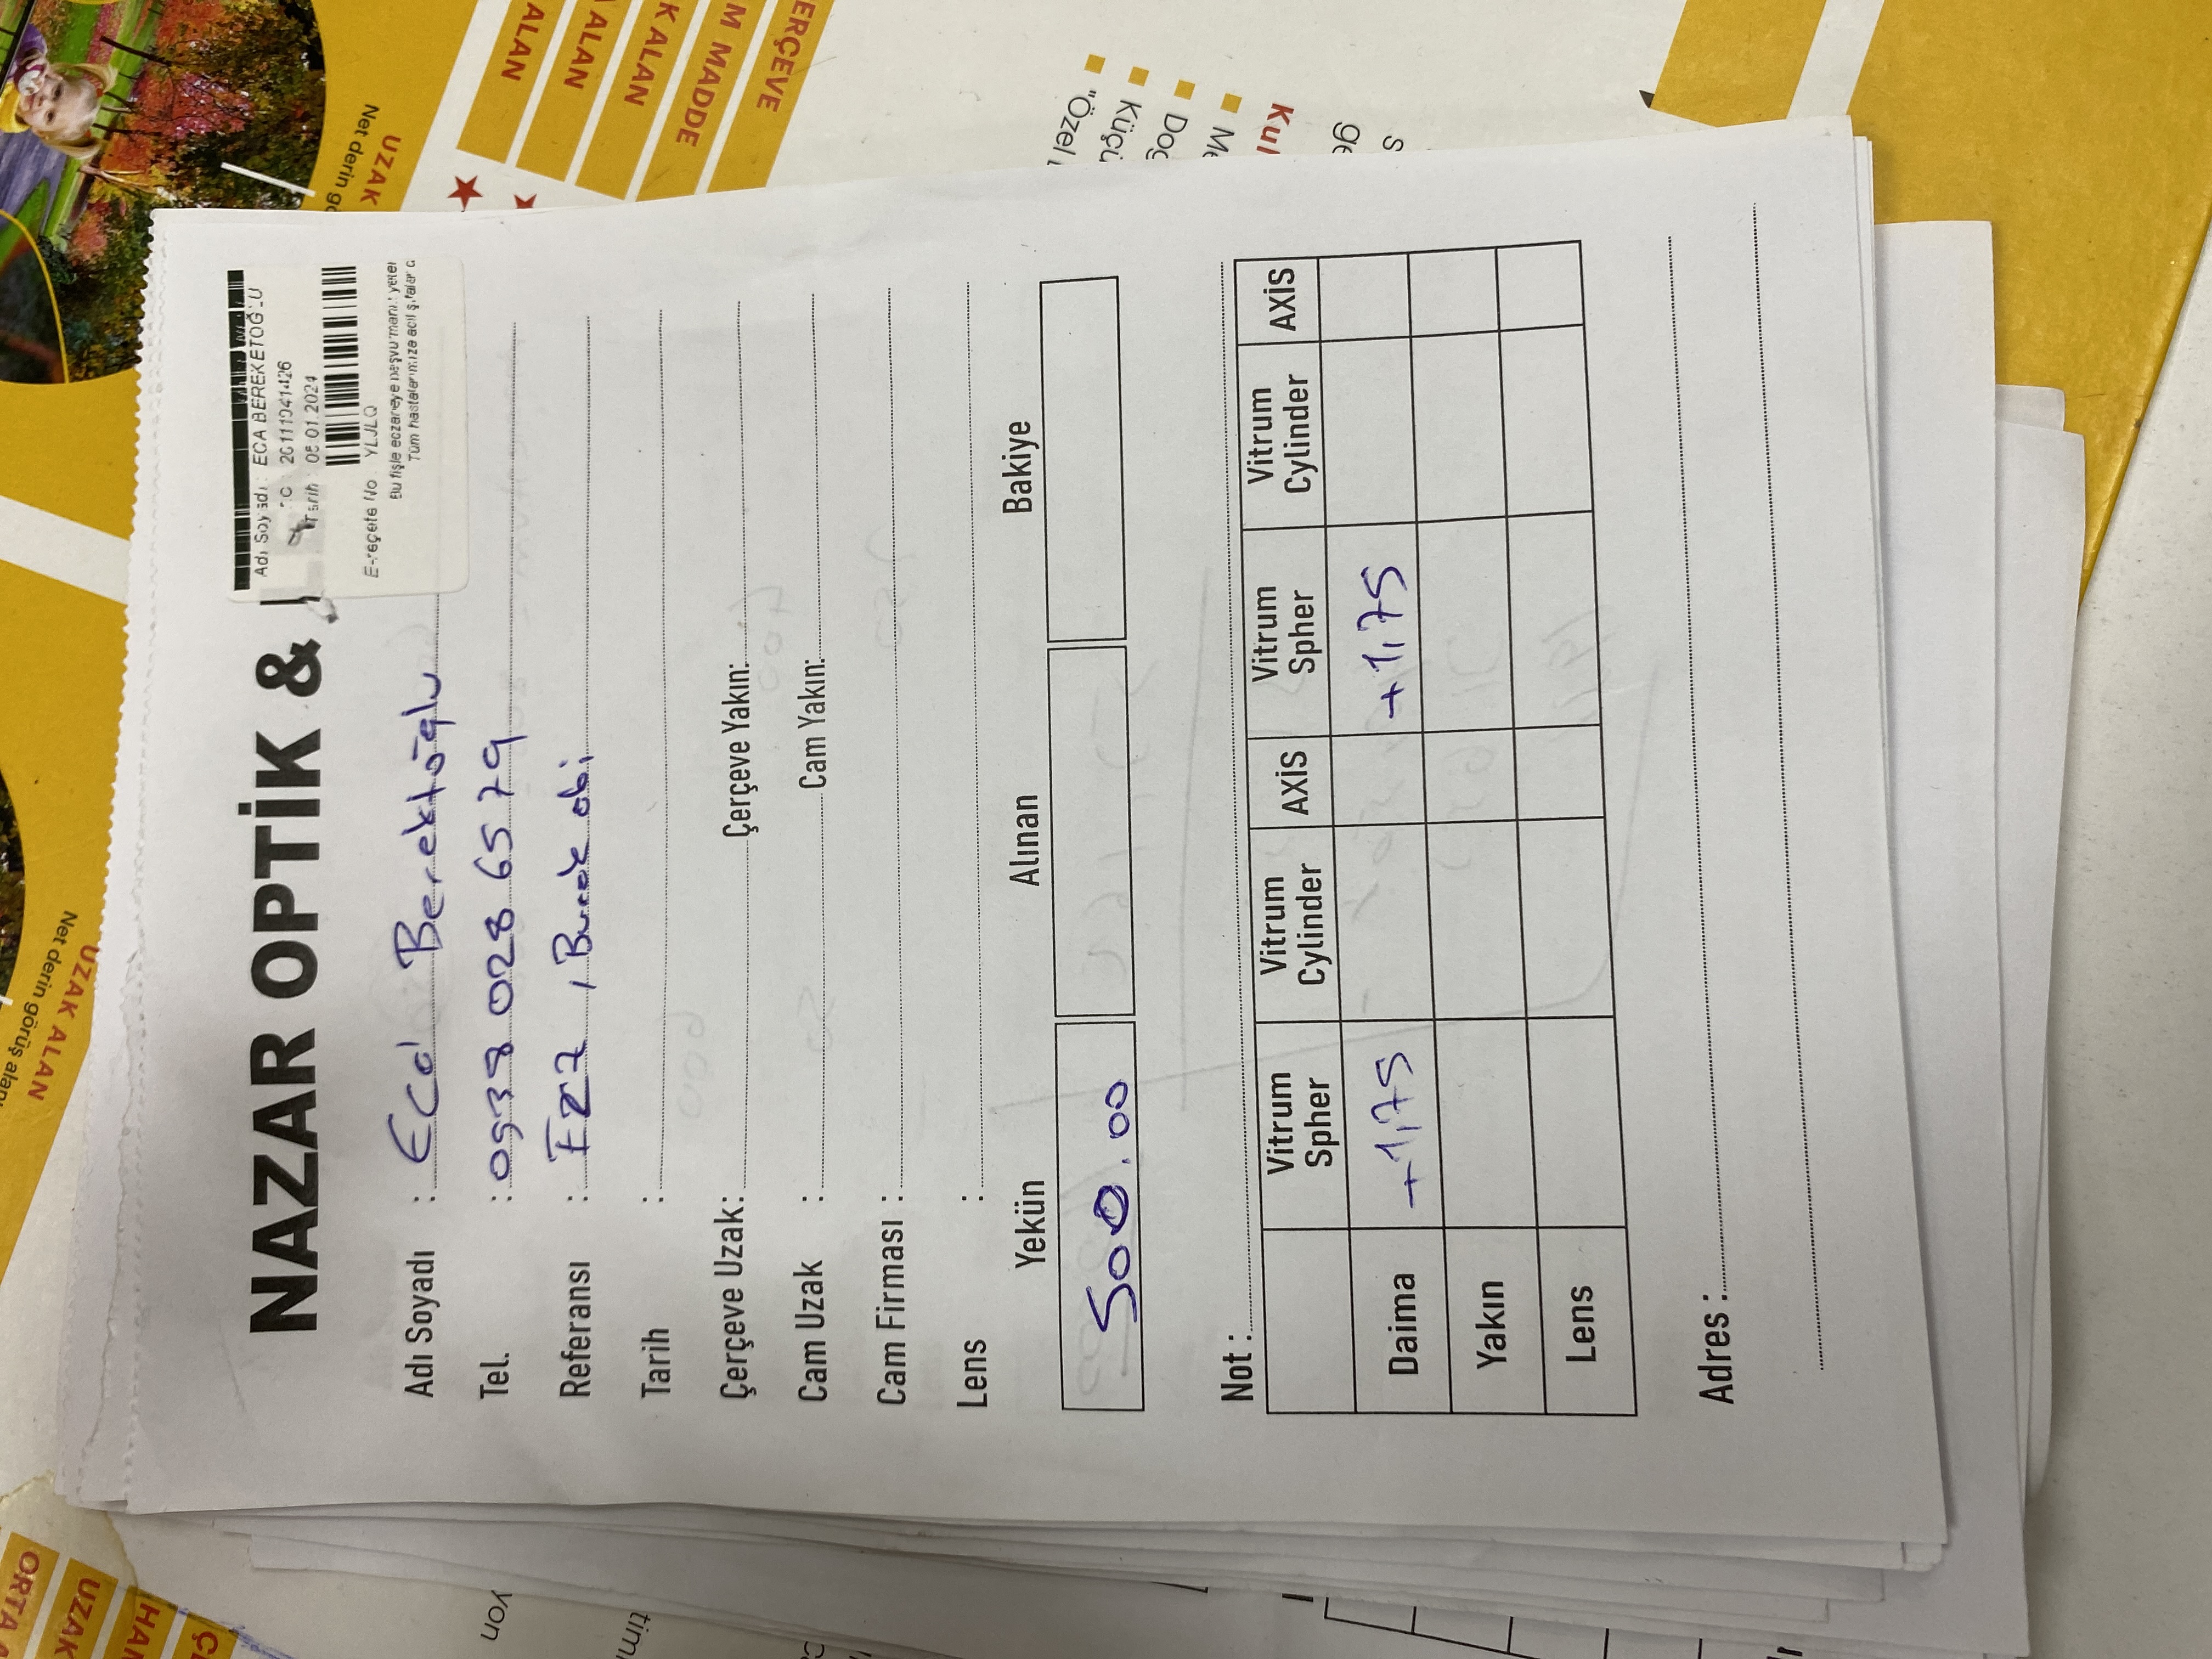 NAZAR OPTİK &
Adı Soyadı : ECA BEREKETOĞLU
20111041426
Tarih : 05.01.2024
E-reçete No YLJLQ
Bu fişle eczaneye
Tüm hastalarımıza acil şifalar
Adı Soyadı : Eca Berektoğlu
Tel. : 0538 028 65 79
Referansı : , Burak abi
Tarih :
Çerçeve Uzak: Çerçeve Yakın:
Cam Uzak : Cam Yakın:
Cam Firması :
Lens :
Yekün Alınan Bakiye
500.00
Not :
Vitrum Spher Vitrum Cylinder AXİS Vitrum Spher Vitrum Cylinder AXİS
Daima +1,75 +1,75
Yakın
Lens
Adres :
UZAK ALAN
Net derin görüş alanı
ORTA
UZAK
yon
UZAK
Net derin
ALAN
ALAN
K ALAN
M MADDE
ERÇEVE
"Özel
Küçü